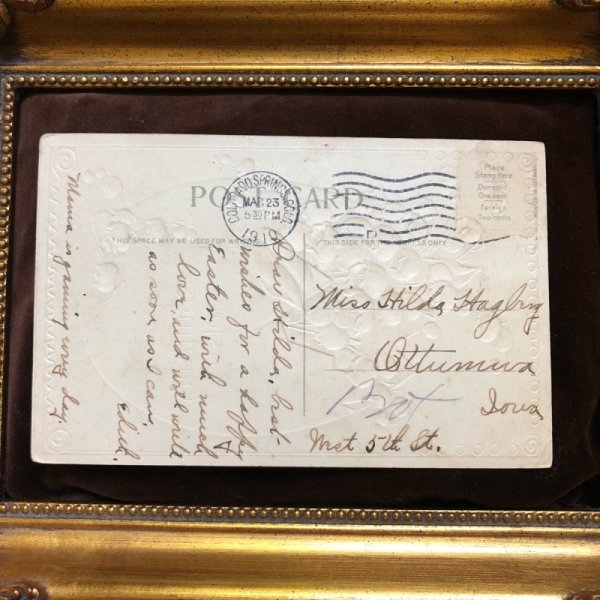 POST CARD
COLORADO SPRINGS, COLO.
MAR 23
630 PM
1910
Place
Stamp Here
Domestic
One cent
Foreign
Two cents
THIS SPACE MAY BE USED FOR
THIS SIDE FOR THE ADDRESS ONLY
Dear Hilda, best
wishes for a happy
Easter, with much
love, and will write
as soon as I can.
Mema is gaining every day.
Miss Hilda
Ottumwa
Iowa
5th St.